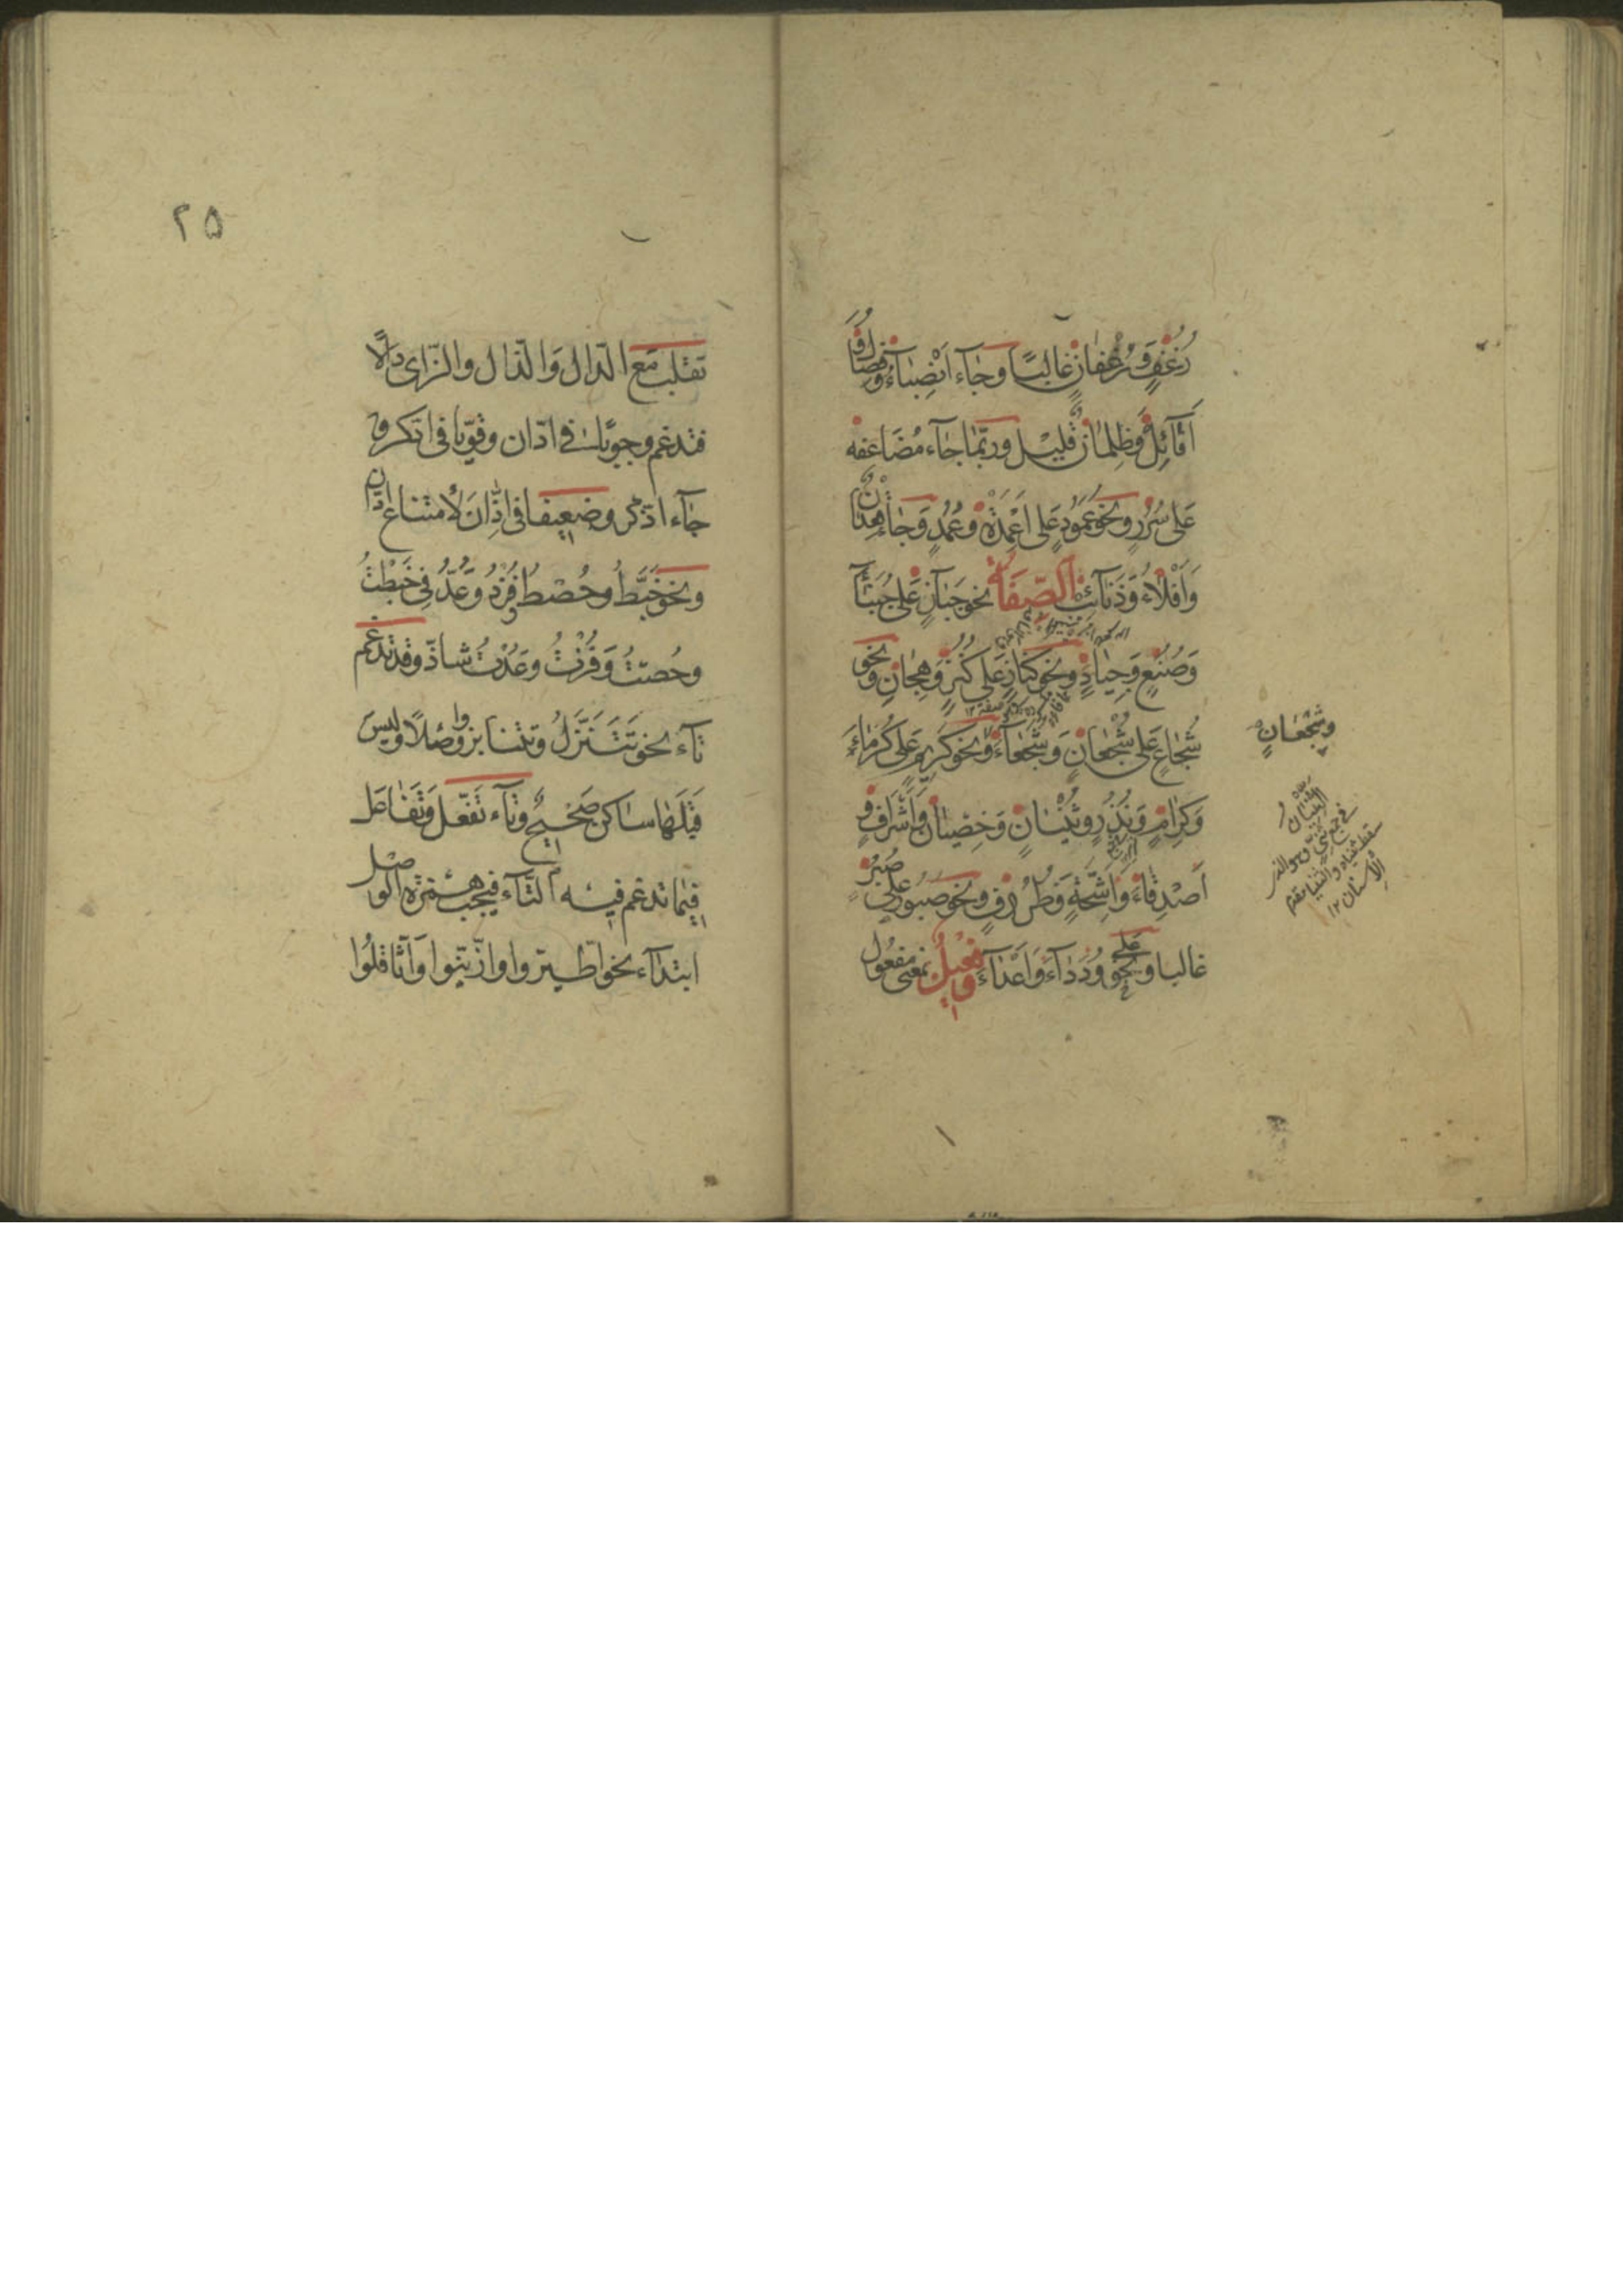 رُغُفٍ وَرُغْفَانٍ غَالِبًا وَجَاءَ اَنْصِبَاءُ وَفِصَالٌ وَ
اَفَائِلُ وَظِلْمَانٌ قَلِيْلٌ وربّما جاء مُضَاعفه
عَلى سُرُرٍ ونحو عَمُودٍ عَلى اَعْمِدَةٍ وعُمُدٍ وَجَاءَ قِعْدَانٌ
وَاَفْلَاءٌ وَذَنَائِبُ الصّفَةُ نحو جَبَانٍ عَلى جُبَنَآءَ
وَصُنُعٍ وَجِيَادٍ ونحو كِنَازٍ عَلى كُنُزٍ وَهِجَانٍ ونحو
شُجَاعٍ عَلى شُجْعَانٍ وَشُجَعَاءَ ونحو كَرِيمٍ عَلى كُرَمَاءَ
وَكِرَامٍ وَنُذُرٍ وثُنْيَانٍ وَخِصْيَانٍ وَاَشْرَافٍ وَ
اَصْدِقَاءَ وَاَشِحَّةٍ وَظُرُوفٍ ونحو صَبُورٍ على صُبُرٍ
غالبا وعلى وُدَدَاءَ وَاَعْدَاءَ وَفَعِيْلٌ بمعنى مفعُول
وَشِجْعَانٍ
٢٥
تقلب مَعَ الدّال وَالذّال والزّاى دالًا
فتدغم وجوبًا فى ادّان وقويّا فى ادّكر و
جاء اذّكر وضعيفا فى اذّان لامتناع ادّان
ونحو خَبَطُّ وحُصْطُ وفُزْدُ وَعُدُّ فى خَبَطْتُ
وحُصْتُ وَفُزْتُ وعُدْتُ شاذّ وقد تدغم
تاء نحو تَتَنَزَّلُ وتتنابزوا وصْلًا وليسَ
قَبْلَهَا ساكن صَحيحٌ وتاء تَفَعّل وَتَفَاعَل
فيما تدغم فيه التّاء فيجب همزة الوصل
ابتداء نحو اطّيّروا وازّيّنوا وَاثّاقلُوا